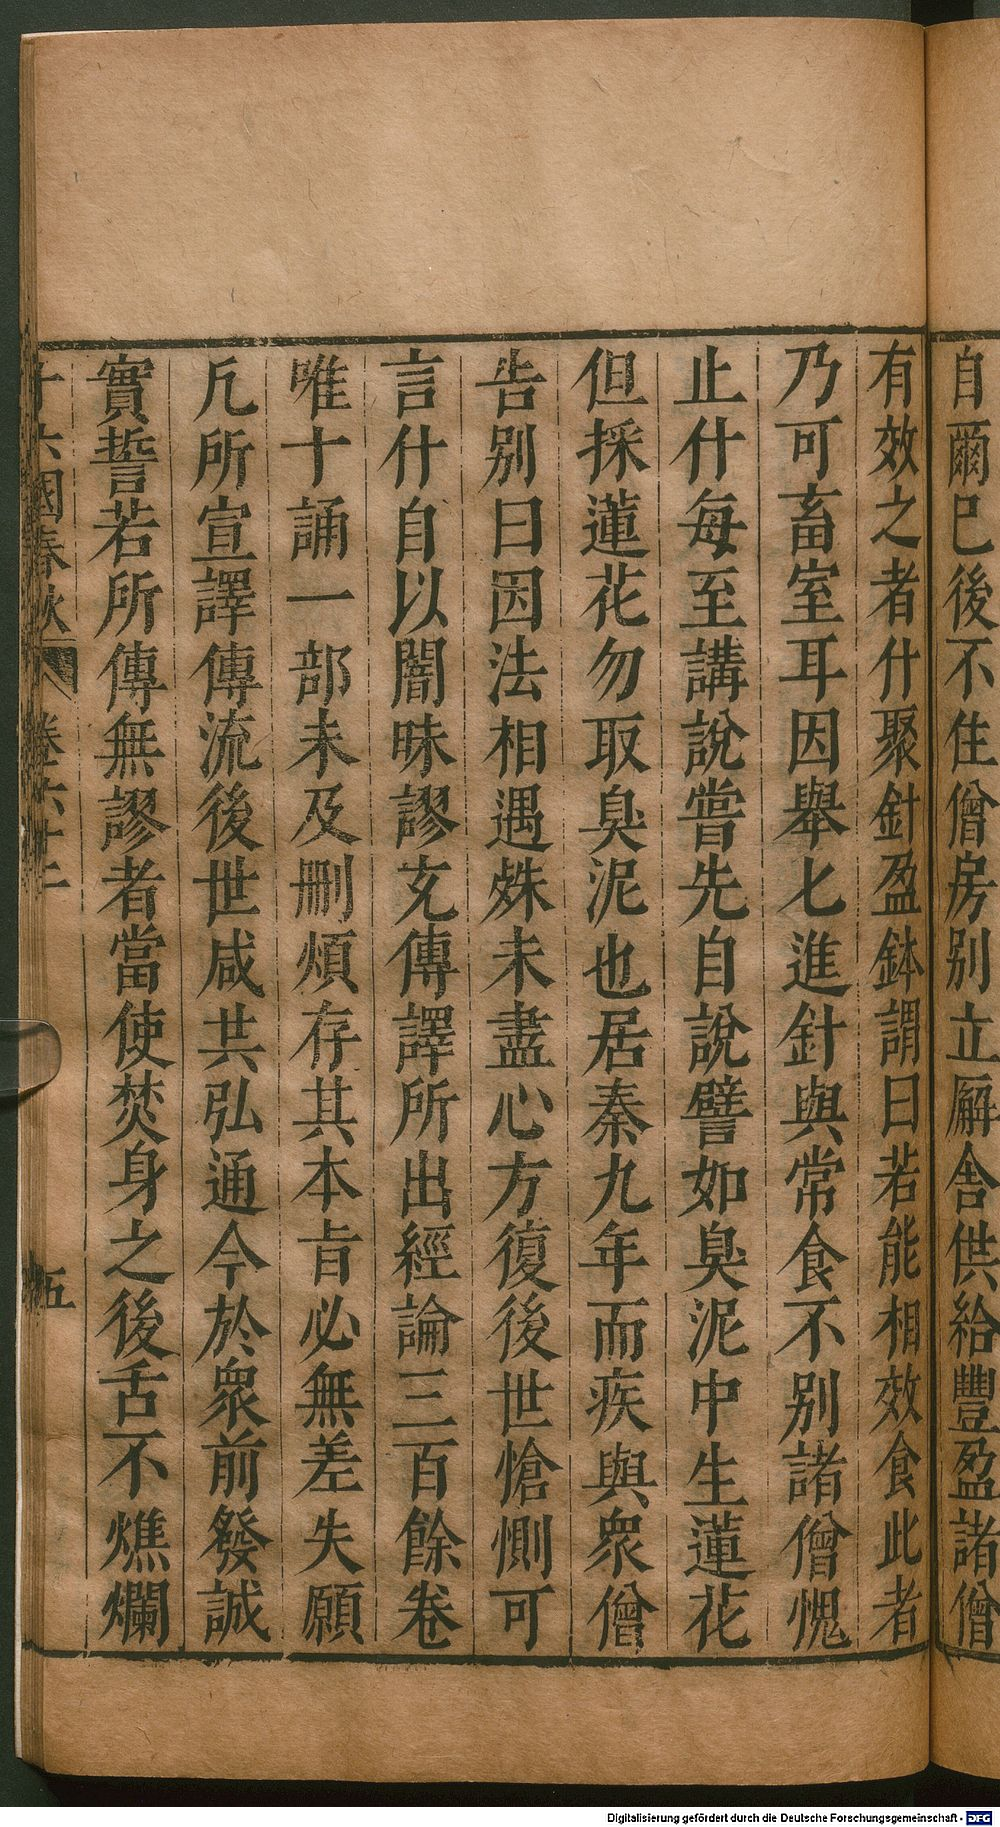 自爾已後不住僧房别立廨舍供給豐盈諸僧
有效之者什聚針盈鉢謂曰若能相效食此者
乃可畜室耳因舉匕進針與常食不别諸僧愧
止什每至講說嘗先自說譬如臭泥中生蓮花
但採蓮花勿取臭泥也居秦九年而疾與衆僧
告别曰因法相遇殊未盡心方復後世愴惻可
言什自以闇昧謬充傳譯所出經論三百餘卷
唯十誦一部未及刪煩存其本旨必無差失願
凡所宣譯傳流後世咸共弘通今於衆前發誠
實誓若所傳無謬者當使焚身之後舌不燋爛
十六國春秋 卷六十二 五
Digitalisierung gefördert durch die Deutsche Forschungsgemeinschaft - DFG